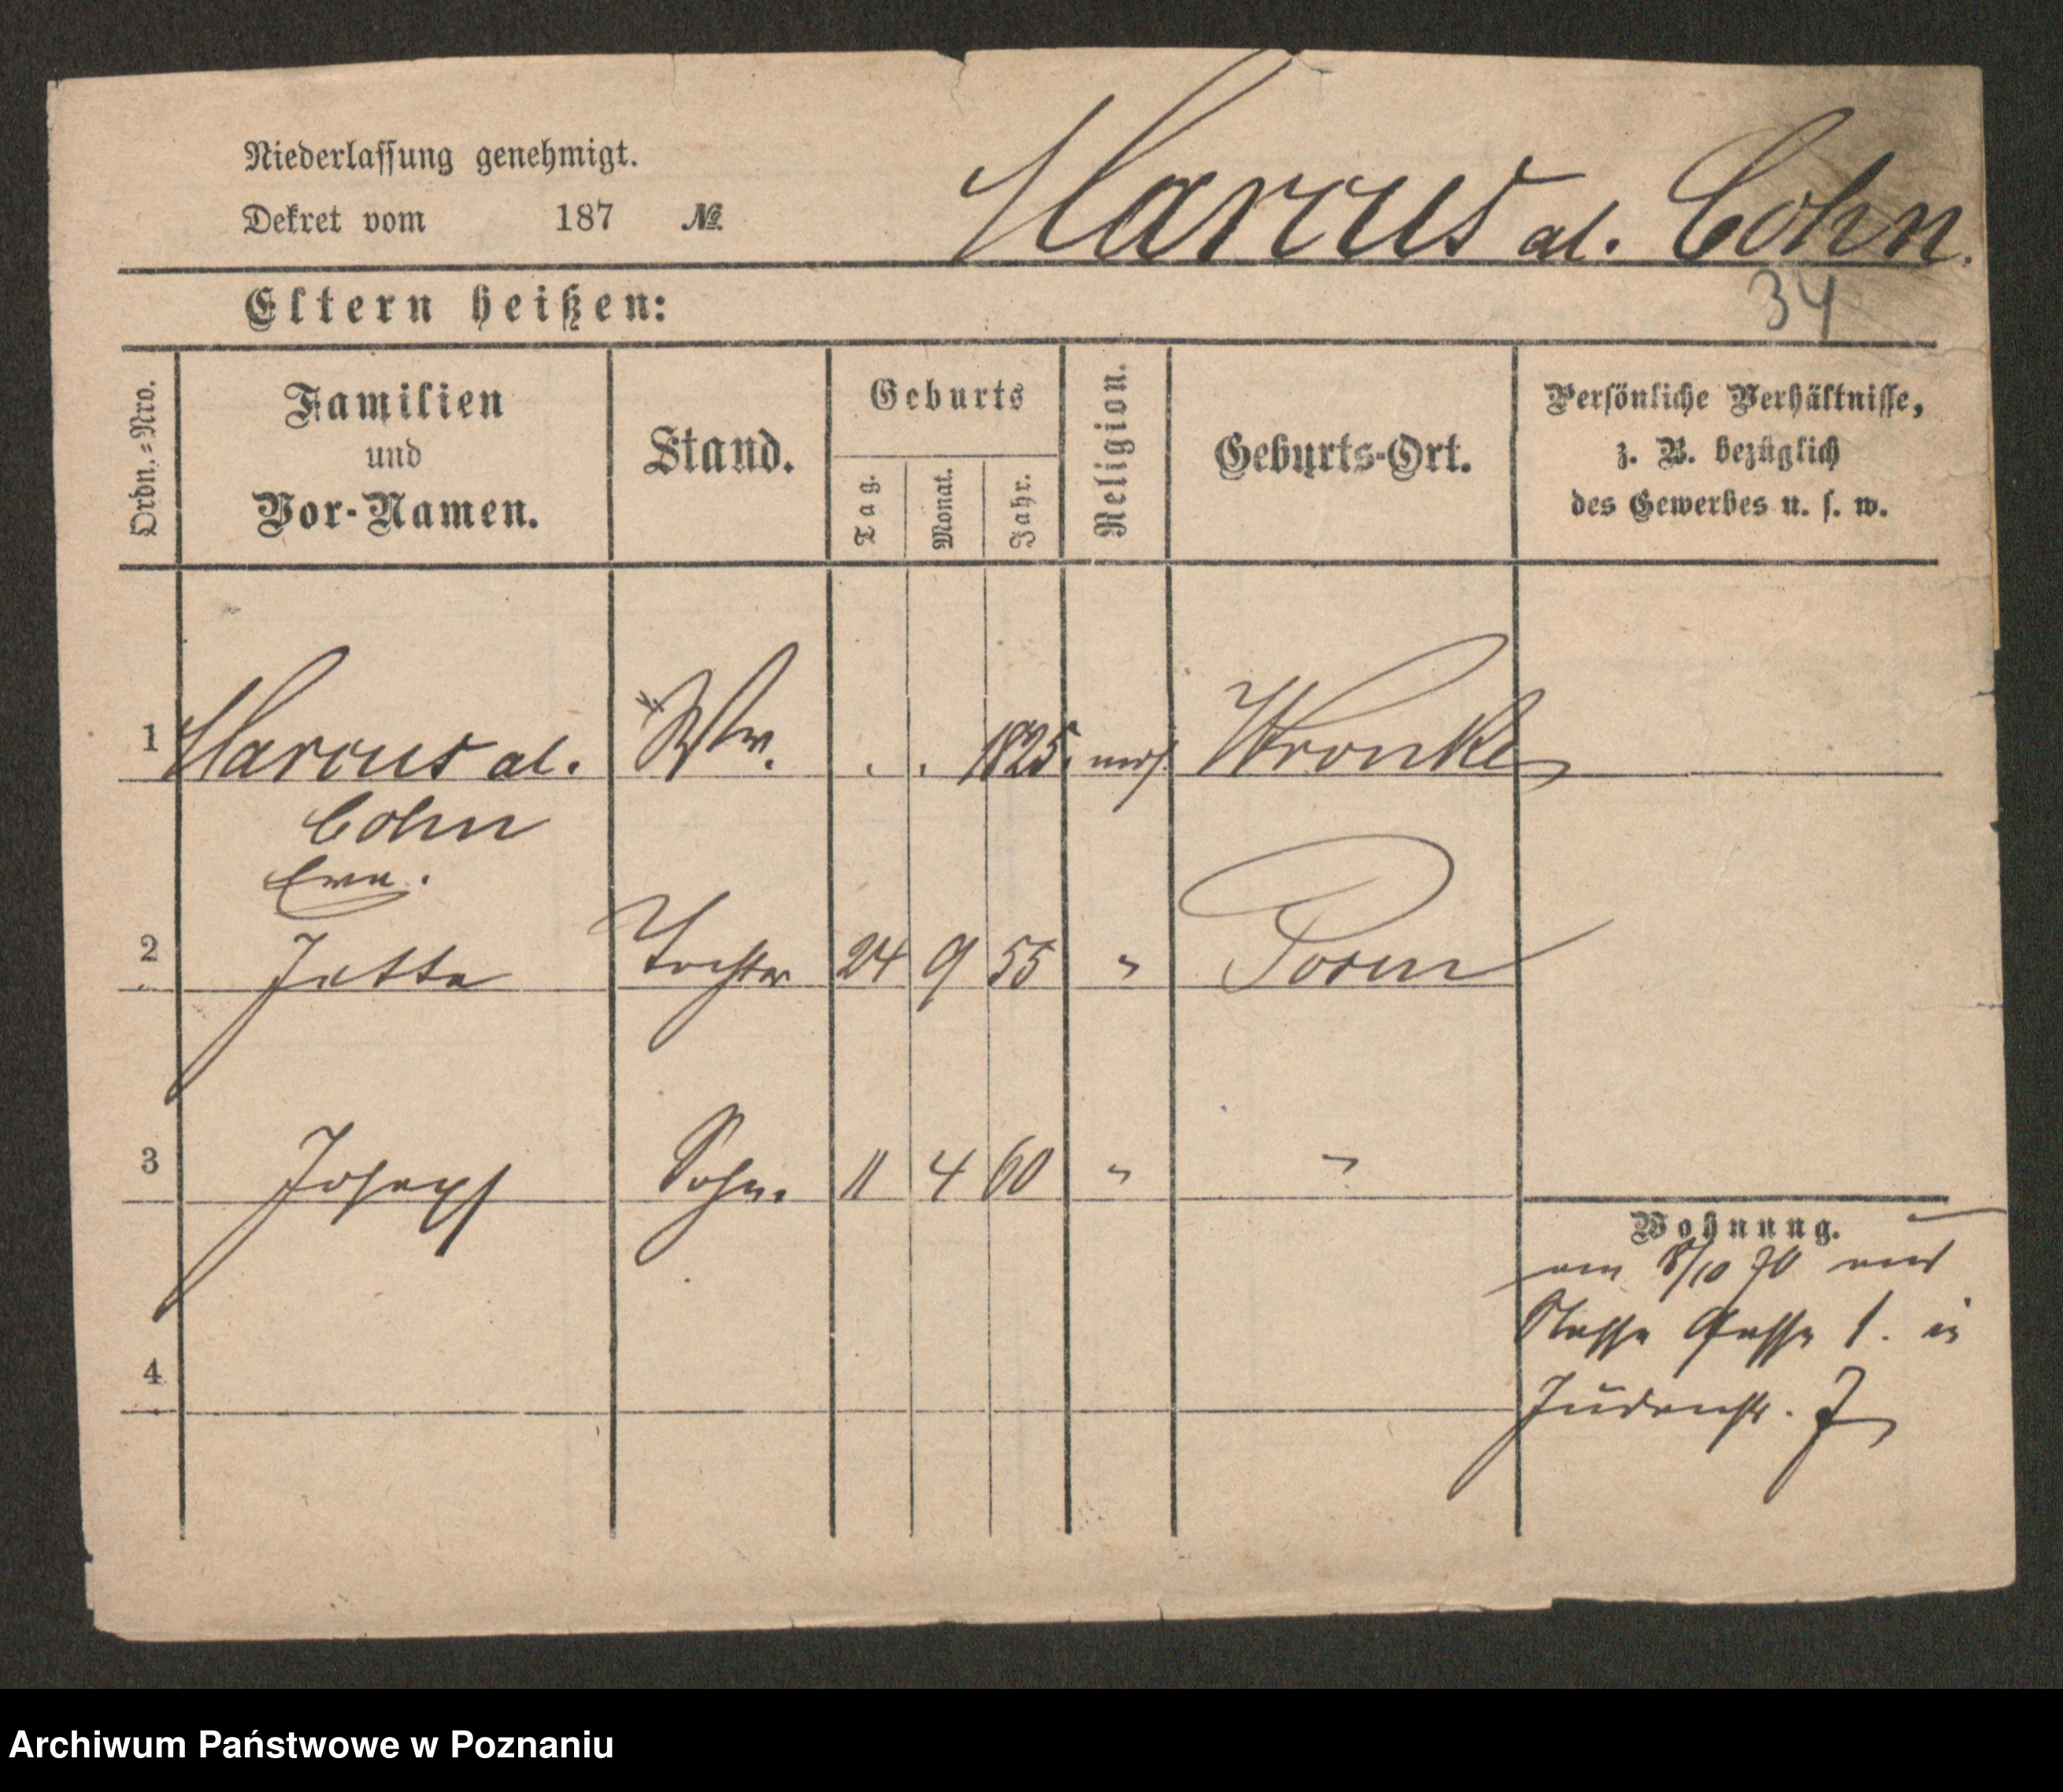 Niederlassung genehmigt.
Dekret vom 187 №
Marcus al. Cohn.
34
Eltern heißen:
Ordn.=Nro.
Familien
und
Vor-Namen.
Stand.
Geburts
Tag.
Monat.
Jahr.
Religion.
Geburts-Ort.
Persönliche Verhältnisse,
z. B. bezüglich
des Gewerbes u. s. w.
1 Marcus al. Ww. . . 1825. mos. Wronke
Cohn
2 Jette Tochter 24 9 55 " Posen
3 Joseph Sohn. 11 4 60 " "
Wohnung.
am 8/10 70 aus
Nasse Gasse 1. in
Judenstr. 7
4
Archiwum Państwowe w Poznaniu